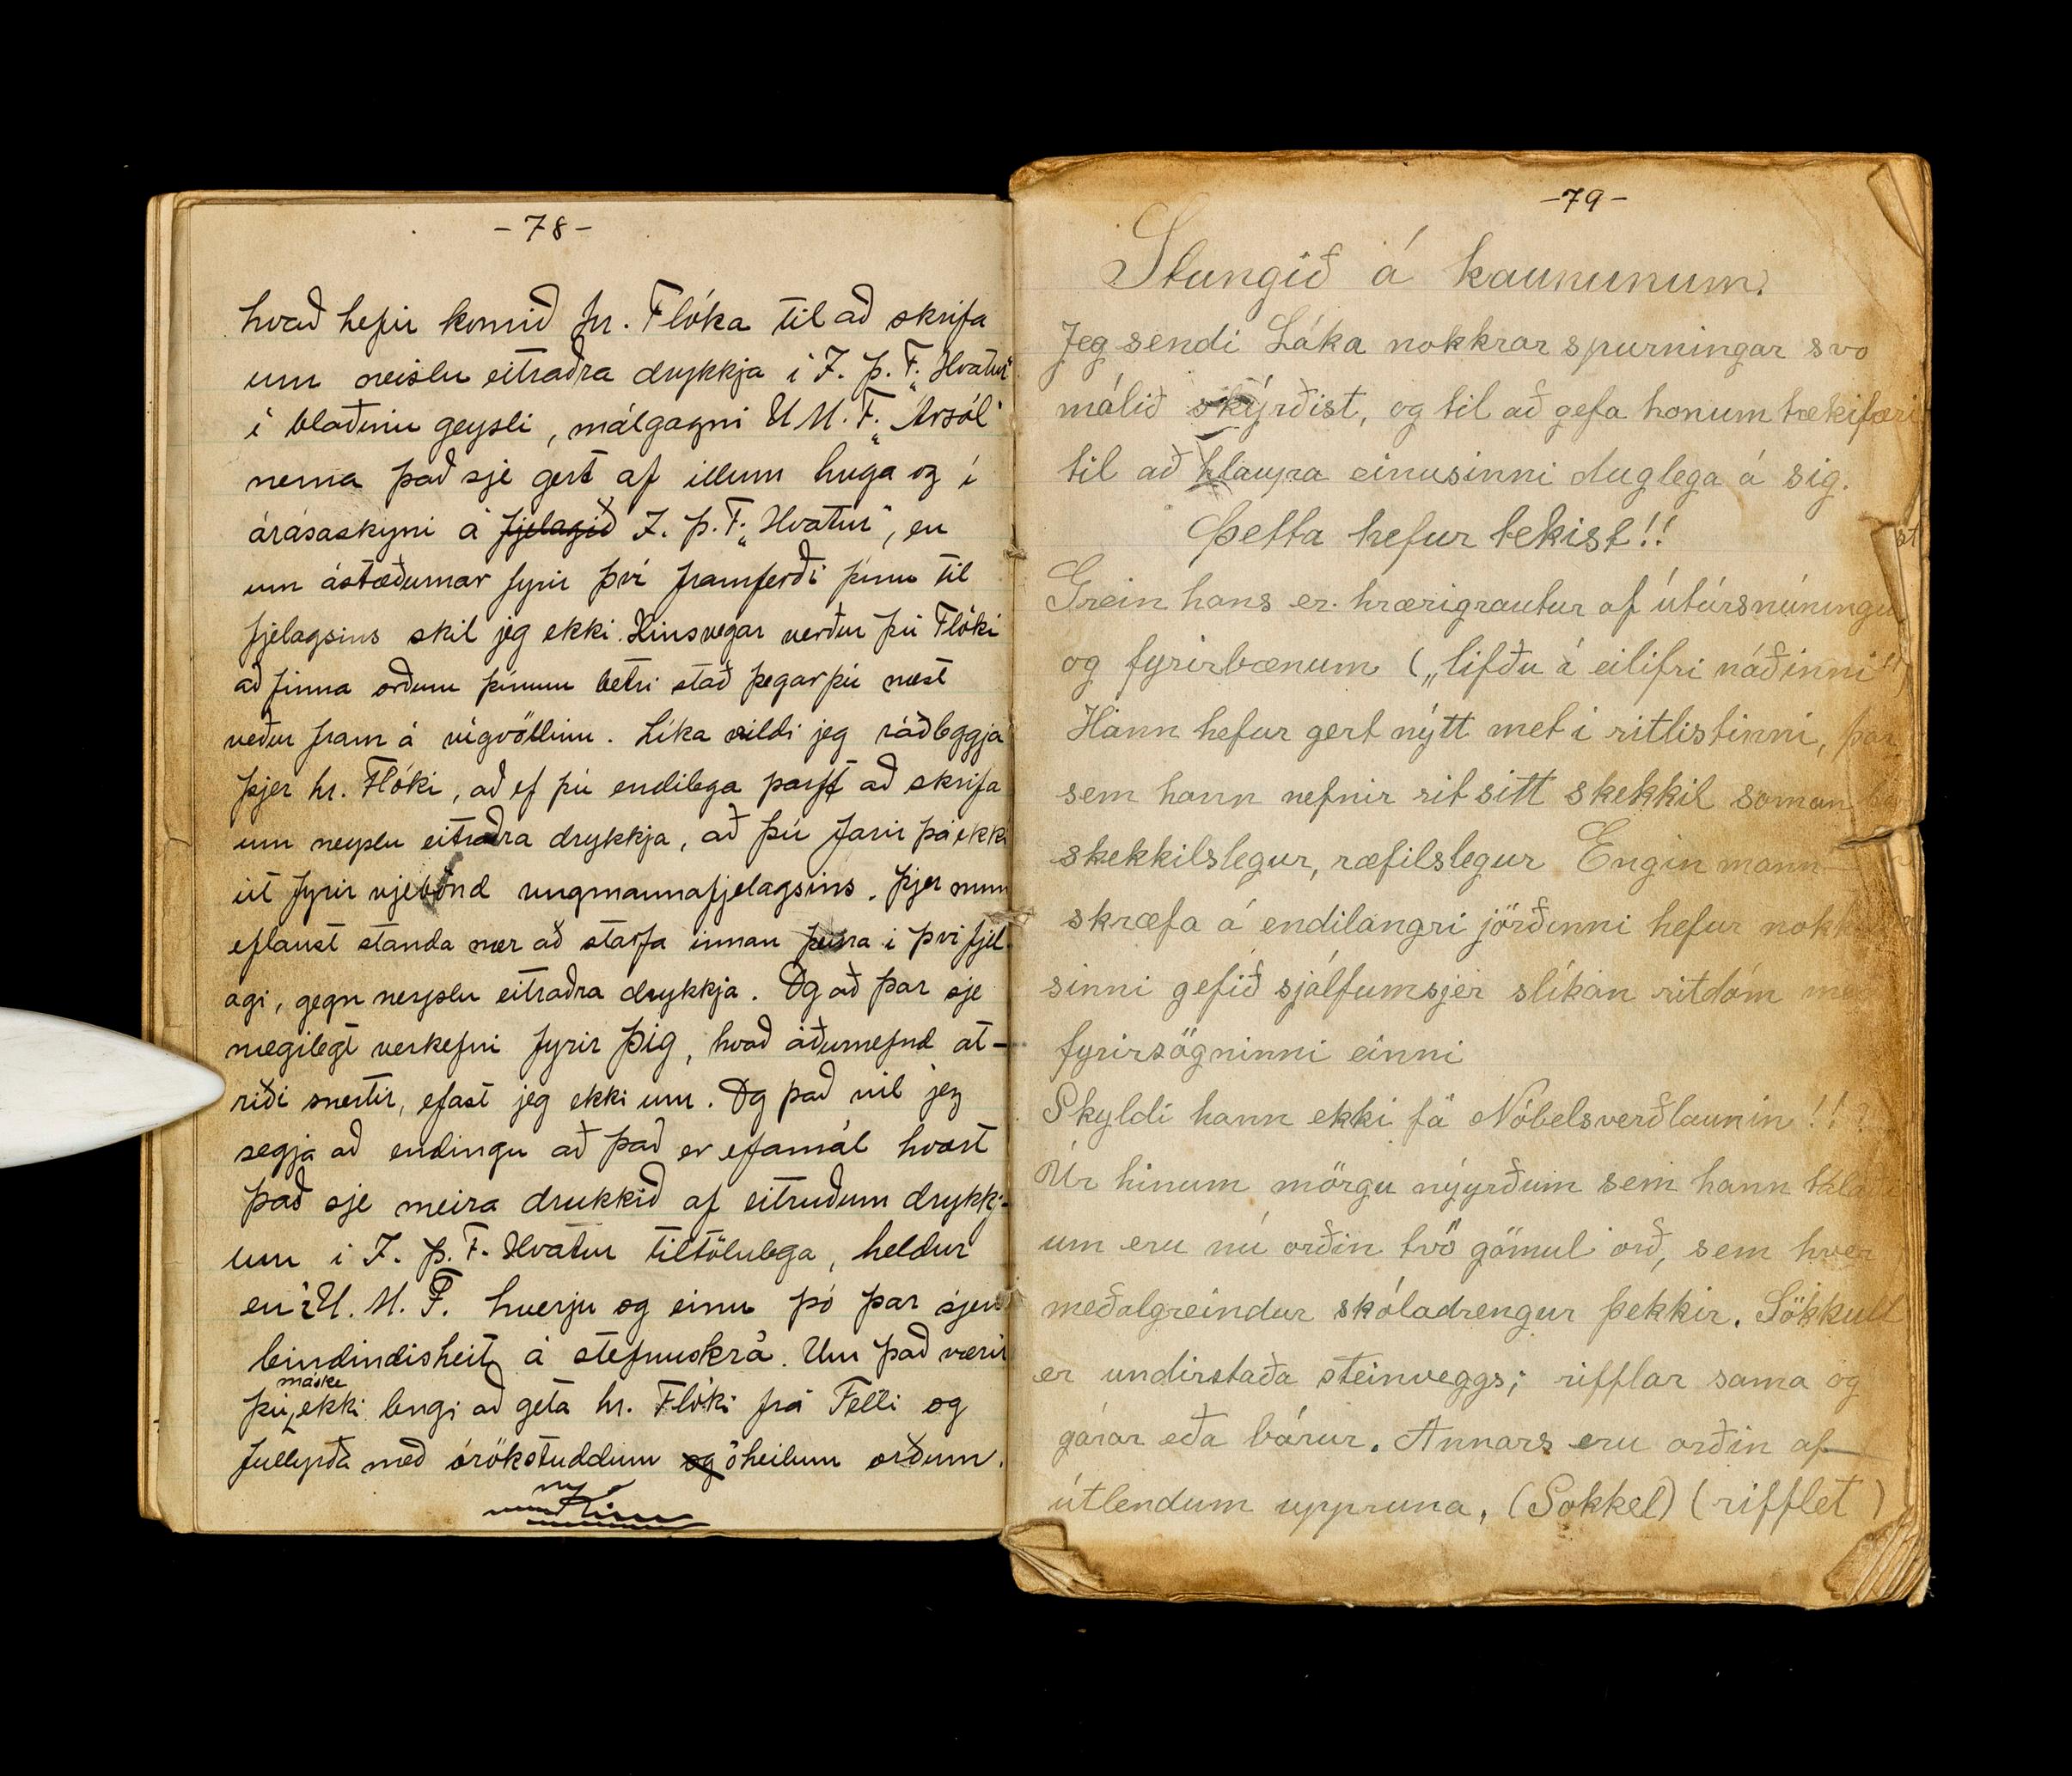 -78-
hvað hefir komið hr. Flóka til að skrifa
um neislu eitraðra drykkja í I. Þ. F. „Hvatur"
í blaðinu geysli, málgagni U. M. F. „Ársól"
nema það sje gert af illum huga og í
árásaskyni á fjelagið I. Þ. F. „Hvatur", en
um ástæðurnar fyrir því framferði þínu til
fjelagsins skil jeg ekki. Hinsvegar verður þú Flóki
að finna orðum þínum betri stað þegar þú næst
veður fram á vígvöllinn. Líka vildi jeg ráðleggja
þjer hr. Flóki, að ef þú endilega þarft að skrifa
um neyslu eitraðra drykkja, að þú farir þá ekki
út fyrir vjebönd ungmannafjelagsins. Þjer mun
eflaust standa nær að starfa innan þeirra í því fjel
agi, gegn neyslu eitraðra drykkja. Og að þar sje
nægilegt verkefni fyrir þig, hvað áðurnefnd at-
riði snertir, efast jeg ekki um. Og það vil jeg
segja að endingu að það er efamál hvort
það sje meira drukkið af eitruðum drykkj-
um í I. Þ. F. Hvatur tiltölulega, heldur
en í U. M. F. hverju og einu þó þar sjeu
bindindisheit á stefnuskrá. Um það værir
þú máske ekki lengi að geta hr. Flóki frá Felli og
fullyrða með órökstuddum og óheilum orðum.
-79-
Stungið á kaununum.
Jeg sendi Láka nokkrar spurningar svo
málið skýrðist, og til að gefa honum tækifæri
til að hlaupa einusinni duglega á sig.
Þetta hefur tekist!!
Grein hans er hrærigrautur af útúrsnúningu
og fyrirbænum („lifðu í eilifri náðinni"!)
Hann hefur gert nýtt met í ritlistinni, þar
sem hann nefnir rit sitt skekkil saman
skekkilslegur, ræfilslegur Engin mann-
skræfa á endilangri jörðinni hefur nokk
sinni gefið sjálfumsjer slíkan ritdóm
fyrirsögninni einni
Skyldi hann ekki fá Nóbelsverðlaunin!!
Úr hinum mörgu nýyrðum sem hann talað
um eru nú orðin tvö gömul orð, sem hver
meðalgreindur skóladrengur þekkir. Sökkull
er undirstaða steinveggs; rifflar sama og
gárar eða bárur. Annars eru orðin af
útlendum uppruna, (Sokkel) (rifflet)